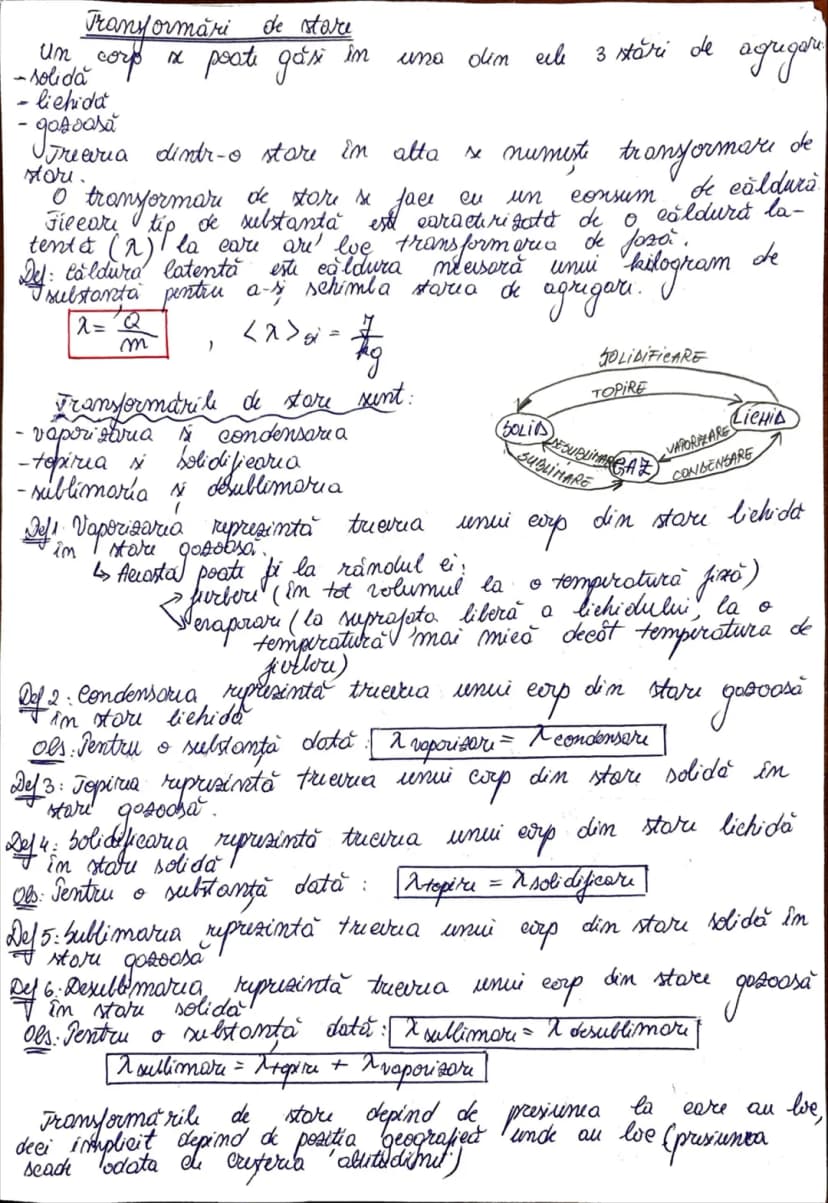 Transformări de stare
Un corp se poate găsi în una din cele 3 stări de agregare
- solidă
- lichidă
- gazoasă
Trecerea dintr-o stare în alta se numește transformare de
stare.
O transformare de stare se face cu un consum de căldură.
Fiecare tip de substanță este caracterizată de o căldură la-
tentă (λ) la care are loc transformarea de fază.
Def: Căldura latentă este căldura necesară unui kilogram de
substanță pentru a-și schimba starea de agregare.
λ = Q/m , <λ>SI = J/kg
SOLIDIFICARE
TOPIRE
Transformările de stare sunt:
SOLID LICHID
- vaporizarea și condensarea
DESUBLIMARE GAZ VAPORIZARE
- topirea și solidificarea
SUBLIMARE CONDENSARE
- sublimarea și desublimarea
Def 1: Vaporizarea reprezintă trecerea unui corp din stare lichidă
în stare gazoasă.
↳ Aceasta poate fi la rândul ei:
→ fierbere (în tot volumul la o temperatură fixă)
→ evaporare (la suprafața liberă a lichidului, la o
temperatură mai mică decât temperatura de
fierbere)
Def 2: Condensarea reprezintă trecerea unui corp din stare gazoasă
în stare lichidă
Obs: Pentru o substanță dată: λ vaporizare = λ condensare
Def 3: Topirea reprezintă trecerea unui corp din stare solidă în
stare gazoasă.
Def 4: Solidificarea reprezintă trecerea unui corp din stare lichidă
în stare solidă
Obs: Pentru o substanță dată: λ topire = λ solidificare
Def 5: Sublimarea reprezintă trecerea unui corp din stare solidă în
stare gazoasă
Def 6: Desublimarea reprezintă trecerea unui corp din stare gazoasă
în stare solidă
Obs: Pentru o substanță dată: λ sublimare = λ desublimare
λ sublimare = λ topire + λ vaporizare
Transformările de stare depind de presiunea la care au loc,
deci implicit depind de poziția geografică unde au loc (presiunea
scade odată cu creșterea altitudinii)